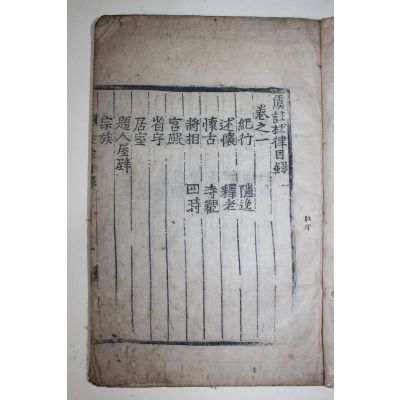 虞註杜律目録
卷之一
紀行 隱逸
述懷 釋老
懷古 寺觀
將相 四時
宫殿
省宇
居室
題人屋壁
宗族